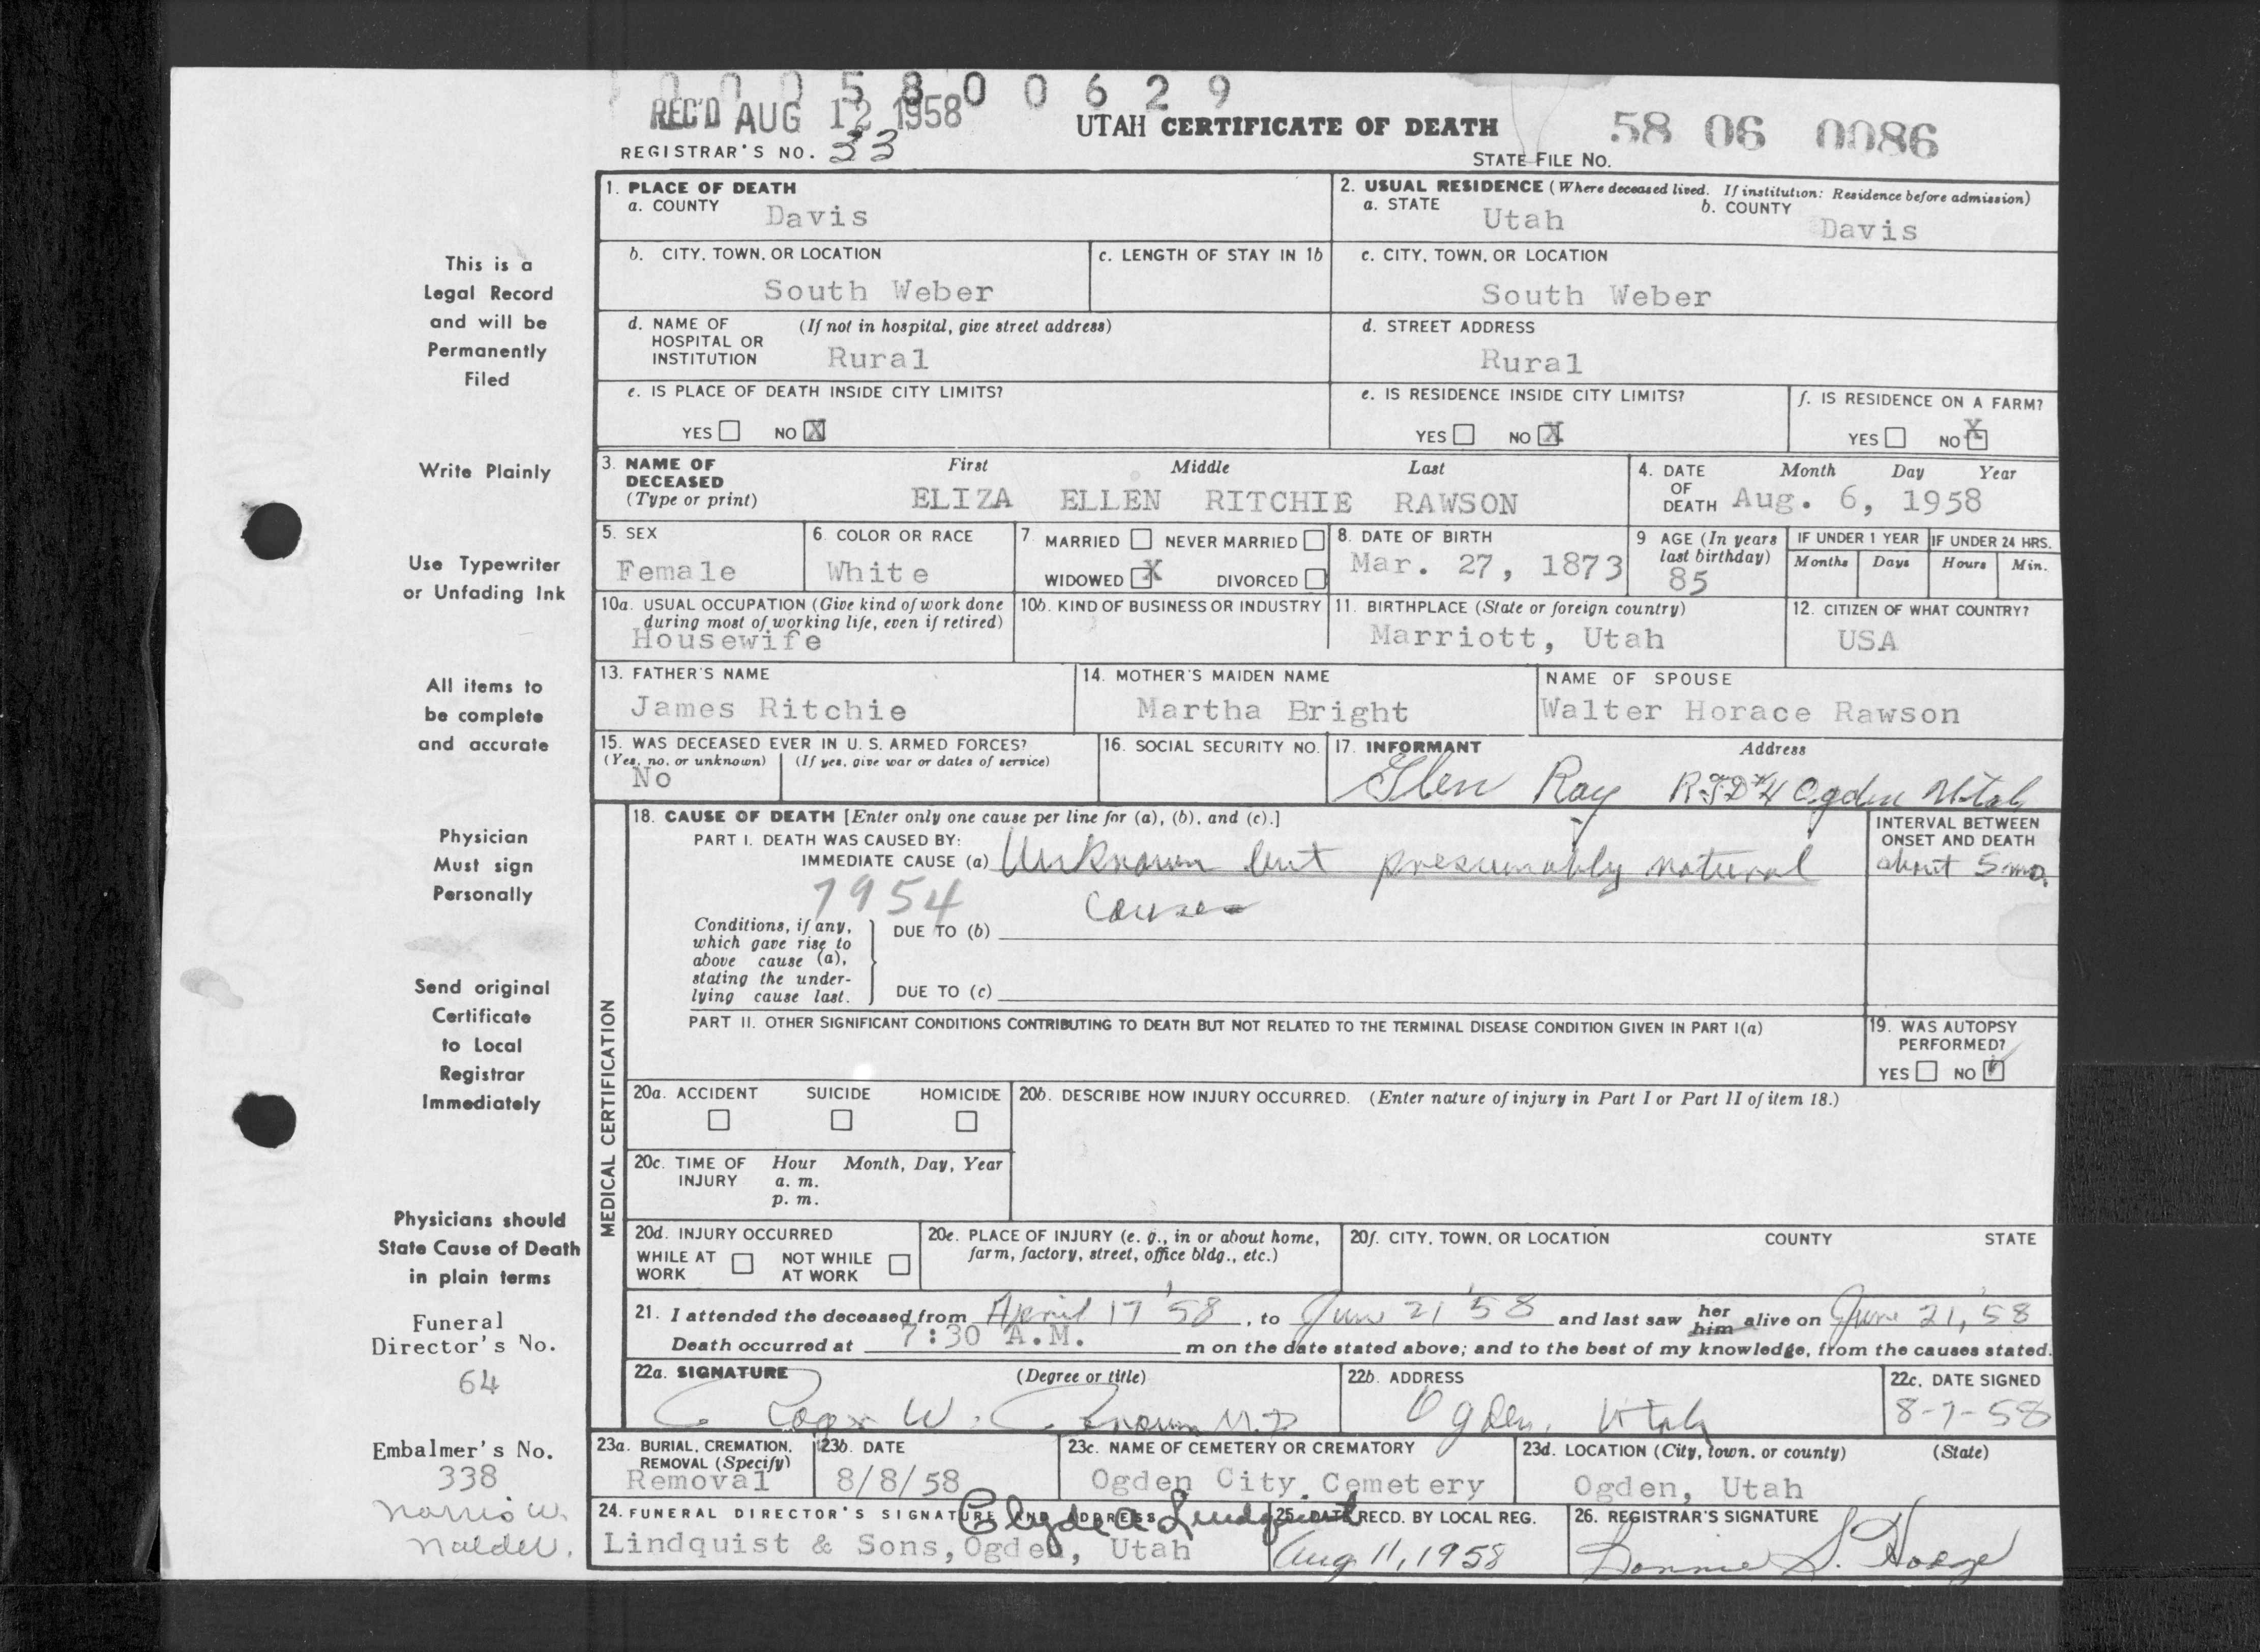 0 0 0 5 8 0 0 6 2 9
REC'D AUG 12 1958
UTAH CERTIFICATE OF DEATH
58 06 0086
REGISTRAR'S NO. 33
STATE FILE No.
This is a
Legal Record
and will be
Permanently
Filed
Write Plainly
Use Typewriter
or Unfading Ink
All items to
be complete
and accurate
Physician
Must sign
Personally
Send original
Certificate
to Local
Registrar
Immediately
Physicians should
State Cause of Death
in plain terms
Funeral
Director's No.
64
Embalmer's No.
338
Norris W.
1. PLACE OF DEATH
a. COUNTY
Davis
2. USUAL RESIDENCE (Where deceased lived. If institution: Residence before admission)
a. STATE
Utah
b. COUNTY
Davis
b. CITY, TOWN, OR LOCATION
South Weber
c. LENGTH OF STAY IN 1b
c. CITY, TOWN, OR LOCATION
South Weber
d. NAME OF HOSPITAL OR INSTITUTION
(If not in hospital, give street address)
Rural
d. STREET ADDRESS
Rural
e. IS PLACE OF DEATH INSIDE CITY LIMITS?
YES NO X
e. IS RESIDENCE INSIDE CITY LIMITS?
YES NO X
f. IS RESIDENCE ON A FARM?
YES NO X
3. NAME OF DECEASED
(Type or print)
First Middle Last
ELIZA ELLEN RITCHIE RAWSON
4. DATE OF DEATH
Month Day Year
Aug. 6, 1958
5. SEX
Female
6. COLOR OR RACE
White
7. MARRIED NEVER MARRIED
WIDOWED X DIVORCED
8. DATE OF BIRTH
Mar. 27, 1873
9 AGE (In years last birthday)
85
IF UNDER 1 YEAR
Months Days
IF UNDER 24 HRS.
Hours Min.
10a. USUAL OCCUPATION (Give kind of work done
during most of working life, even if retired)
Housewife
10b. KIND OF BUSINESS OR INDUSTRY
11. BIRTHPLACE (State or foreign country)
Marriott, Utah
12. CITIZEN OF WHAT COUNTRY?
USA
13. FATHER'S NAME
James Ritchie
14. MOTHER'S MAIDEN NAME
Martha Bright
NAME OF SPOUSE
Walter Horace Rawson
15. WAS DECEASED EVER IN U. S. ARMED FORCES?
(Yes, no, or unknown) (If yes, give war or dates of service)
No
16. SOCIAL SECURITY NO.
17. INFORMANT Address
Glen Ray RFD #4 Ogden Utah
MEDICAL CERTIFICATION
18. CAUSE OF DEATH [Enter only one cause per line for (a), (b), and (c).]
PART I. DEATH WAS CAUSED BY:
IMMEDIATE CAUSE (a) Unknown but presumably natural
causes
7954
INTERVAL BETWEEN
ONSET AND DEATH
about 5 mo.
Conditions, if any,
which gave rise to
above cause (a),
stating the under-
lying cause last.
DUE TO (b)
DUE TO (c)
PART II. OTHER SIGNIFICANT CONDITIONS CONTRIBUTING TO DEATH BUT NOT RELATED TO THE TERMINAL DISEASE CONDITION GIVEN IN PART I(a)
19. WAS AUTOPSY
PERFORMED?
YES NO ✓
20a. ACCIDENT SUICIDE HOMICIDE
20b. DESCRIBE HOW INJURY OCCURRED. (Enter nature of injury in Part I or Part II of item 18.)
20c. TIME OF INJURY
Hour Month, Day, Year
a. m.
p. m.
20d. INJURY OCCURRED
WHILE AT WORK NOT WHILE AT WORK
20e. PLACE OF INJURY (e. g., in or about home,
farm, factory, street, office bldg., etc.)
20f. CITY, TOWN, OR LOCATION COUNTY STATE
21. I attended the deceased from April 17 '58, to June 21 '58 and last saw her him alive on June 21, '58
Death occurred at 7:30 A.M. m on the date stated above; and to the best of my knowledge, from the causes stated.
22a. SIGNATURE (Degree or title)
W. M.D
22b. ADDRESS
Ogden, Utah
22c. DATE SIGNED
8-7-58
23a. BURIAL, CREMATION,
REMOVAL (Specify)
Removal
23b. DATE
8/8/58
23c. NAME OF CEMETERY OR CREMATORY
Ogden City Cemetery
23d. LOCATION (City, town, or county) (State)
Ogden, Utah
24. FUNERAL DIRECTOR'S SIGNATURE AND ADDRESS
Clyde A Lindquist
Lindquist & Sons, Ogden, Utah
25. DATE RECD. BY LOCAL REG.
Aug 11, 1958
26. REGISTRAR'S SIGNATURE
S.